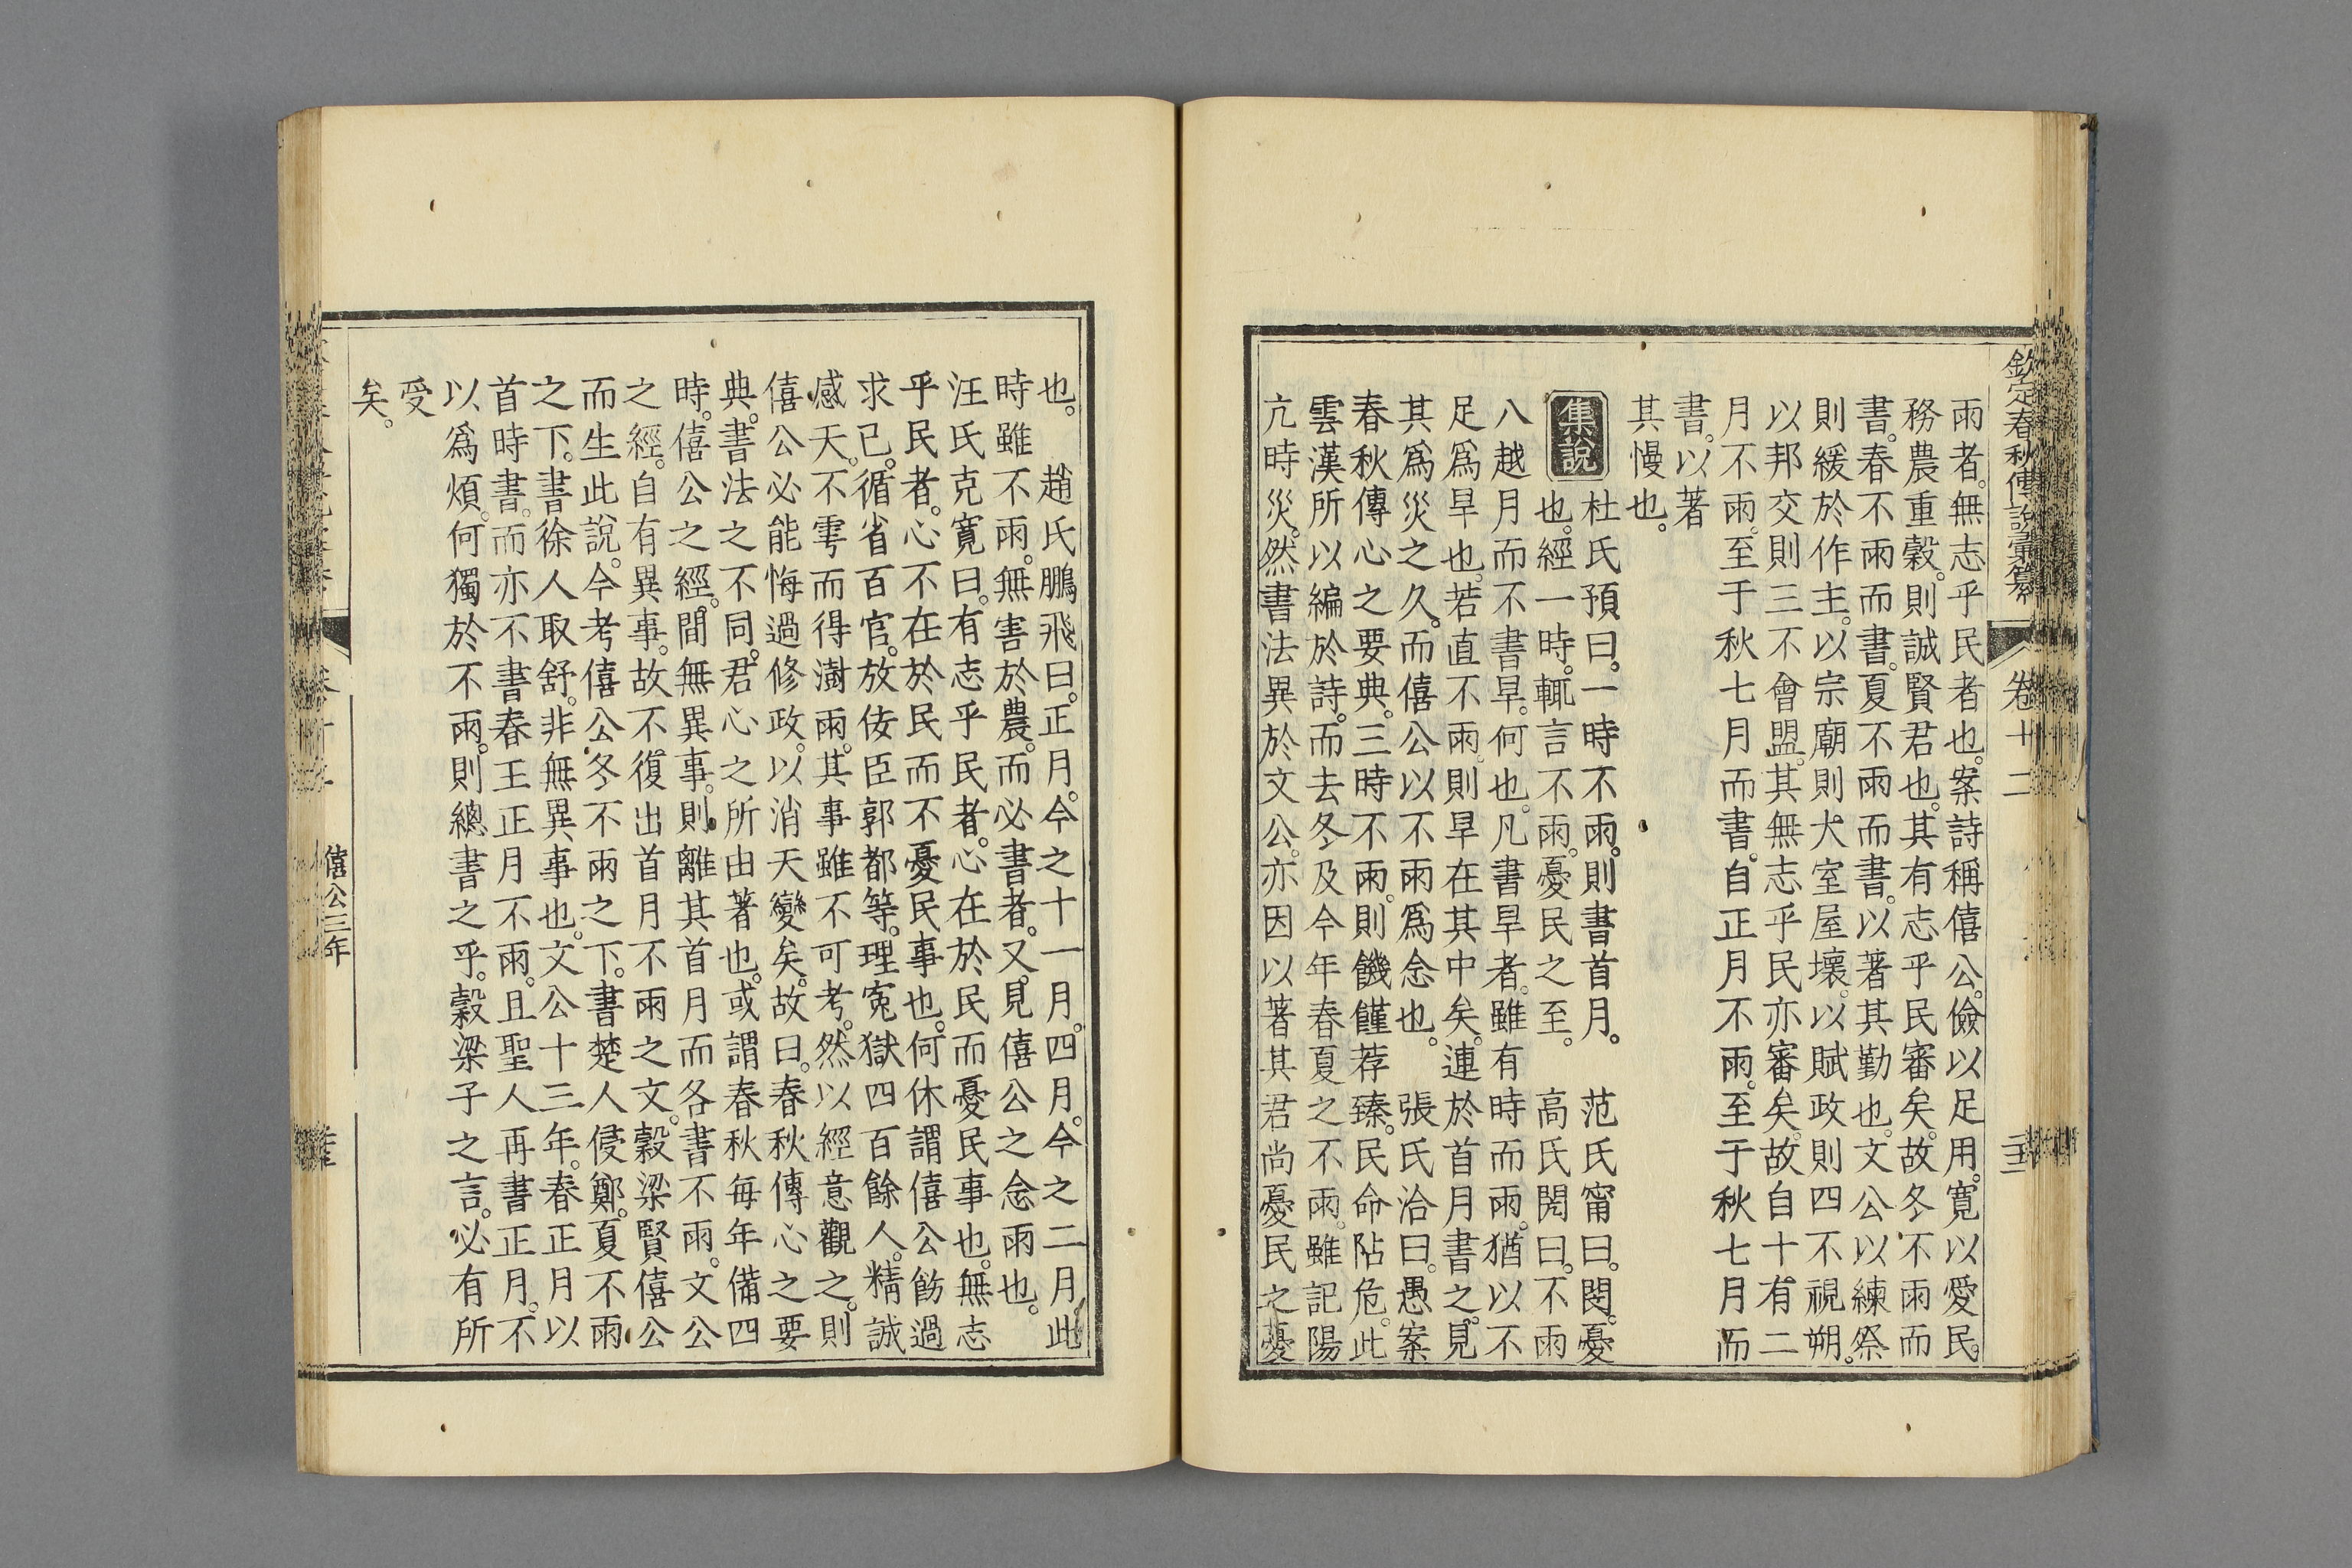 欽定春秋傳說彙纂 卷十二
雨者。無志乎民者也。案詩稱僖公。儉以足用。寬以愛民。
務農重穀。則誠賢君也。其有志乎民審矣。故冬不雨而
書。春不雨而書。夏不雨而書。以著其勤也。文公以練祭
則緩於作主。以宗廟則犬室屋壞。以賦政則四不視朔。
以邦交則三不會盟。其無志乎民亦審矣。故自十有二
月不雨。至于秋七月而書。自正月不雨。至于秋七月而
書。以著
其慢也。
集說
杜氏預曰。一時不雨。則書首月。 范氏甯曰。閔。憂
也。經一時。輒言不雨。憂民之至。 高氏閌曰。不雨
八越月而不書旱。何也。凡書旱者。雖有時而雨。猶以不
足爲旱也。若直不雨。則旱在其中矣。連於首月書之。見
其爲災之久。而僖公以不雨爲念也。 張氏洽曰。愚案
春秋傳心之要典。三時不雨。則饑饉荐臻。民命阽危。此
雲漢所以編於詩。而去冬及今年春夏之不雨。雖記陽
亢時災。然書法異於文公。亦因以著其君尚憂民之憂
也。 趙氏鵬飛曰。正月。今之十一月。四月。今之二月。此
時雖不雨。無害於農。而必書者。又見僖公之念雨也。
汪氏克寬曰。有志乎民者。心在於民而憂民事也。無志
乎民者。心不在於民而不憂民事也。何休謂僖公飭過
求己。循省百官。放佞臣郭都等。理寃獄四百餘人。精誠
感天。不雩而得澍雨。其事雖不可考。然以經意觀之。則
僖公必能悔過修政。以消天變矣。故曰。春秋傳心之要
典。書法之不同。君心之所由著也。或謂春秋每年備四
時。僖公之經。間無異事。則離其首月而各書不雨。文公
之經。自有異事。故不復出首月不雨之文。穀梁賢僖公
而生此說。今考僖公冬不雨之下。書楚人侵鄭。夏不雨
之下。書徐人取舒。非無異事也。文公十三年。春正月以
首時書。而亦不書春王正月不雨。且聖人再書正月。不
以爲煩。何獨於不雨。則總書之乎。穀梁子之言。必有所
受
矣。
僖公三年